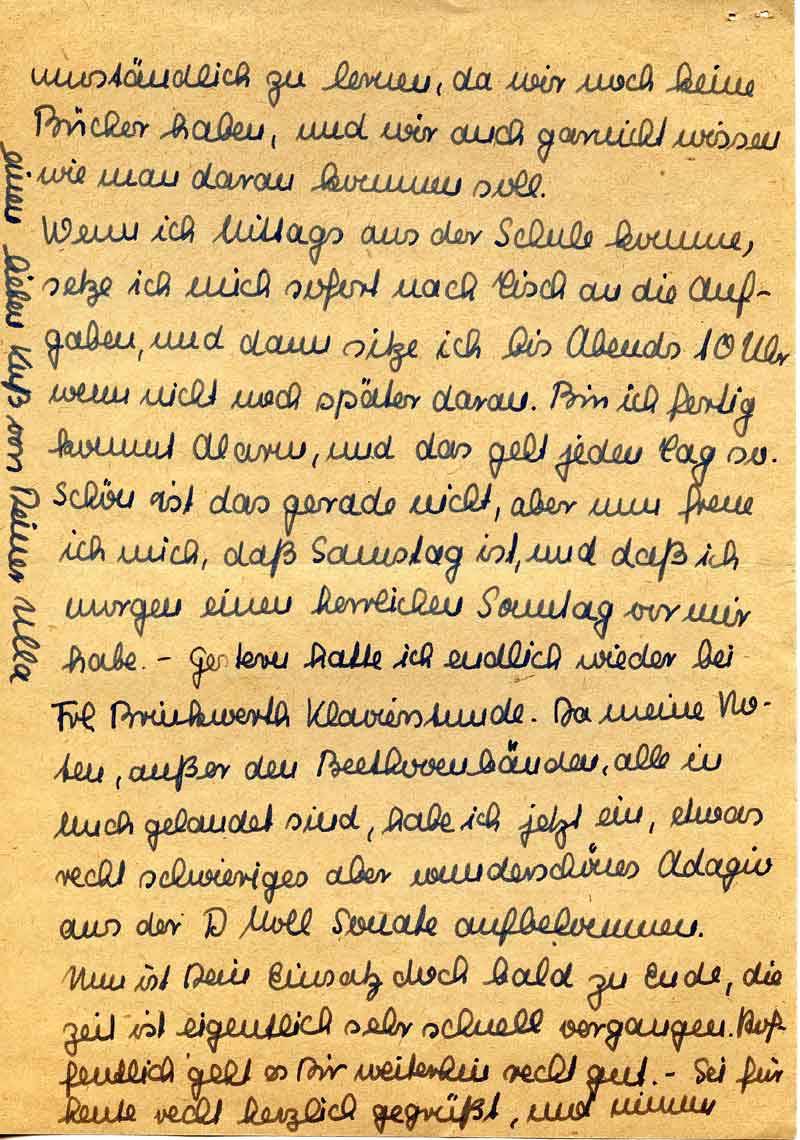 umständlich zu lernen, da wir noch keine
Bücher haben, und wir auch garnicht wissen
wie man daran kommen soll.
Wenn ich Mittags aus der Schule komme,
setze ich mich sofort nach Tisch an die Auf-
gaben, und dann sitze ich bis Abends 10 Uhr
wenn nicht noch später daran. Bin ich fertig
kommt Alarm, und das geht jeden Tag so.
Schön ist das gerade nicht, aber nun freue
ich mich, daß Samstag ist, und daß ich
morgen einen herrlichen Sonntag vor mir
habe. - Gestern hatte ich endlich wieder bei
Frl Brinkwerth Klavierstunde. Da meine No-
ten, außer den Beethovenbänden, alle in
gelandet sind, habe ich jetzt ein, etwas
recht schwieriges aber wunderschönes Adagio
aus der D Moll Sonate aufbekommen.
Nun ist Dein Einsatz doch bald zu Ende, die
Zeit ist eigentlich sehr schnell vergangen. Hof-
fentlich geht es Dir weiterhin recht gut. - Sei für
heute recht herzlich gegrüßt, und nimm
einen lieben Kuß von Deiner Ulla